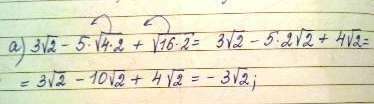 а) 3√2 - 5·√4·2 + √16·2 = 3√2 - 5·2√2 + 4√2 =
= 3√2 - 10√2 + 4√2 = - 3√2;